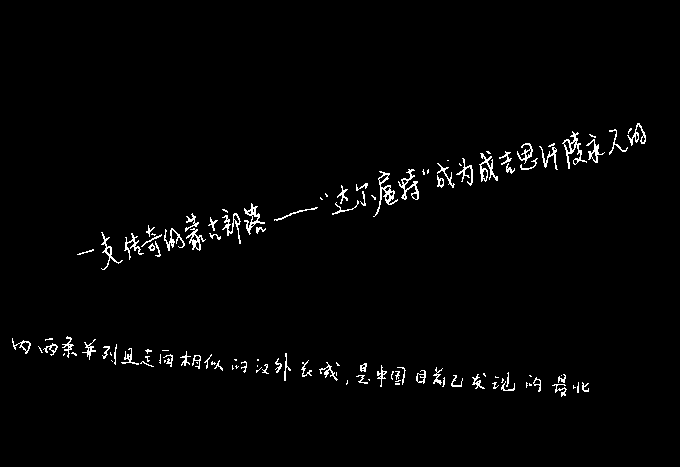 一支传奇的蒙古部落——“达尔扈特”成为成吉思汗陵永久的
内两条并列且走向相似的汉外长城，是中国目前已发现的最北